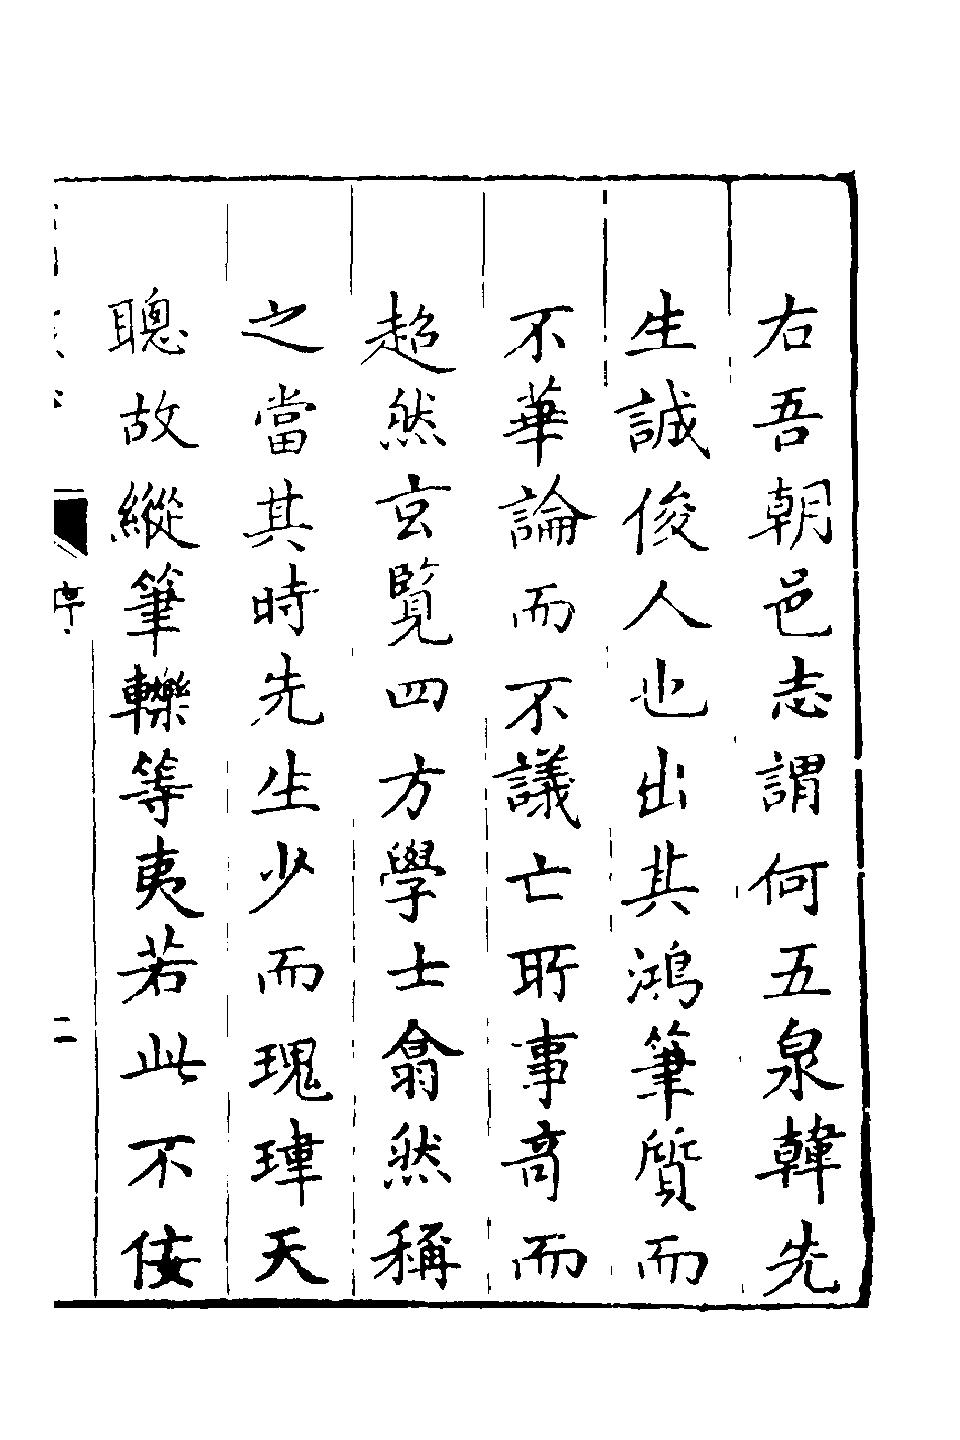 右吾朝邑志謂何五泉韓先
生誠俊人也出其鴻筆質而
不華論而不議亡所事奇而
超然玄覽四方學士翕然稱
之當其時先生少而瑰瑋天
聰故縱筆轢等夷若此不佞
序
二